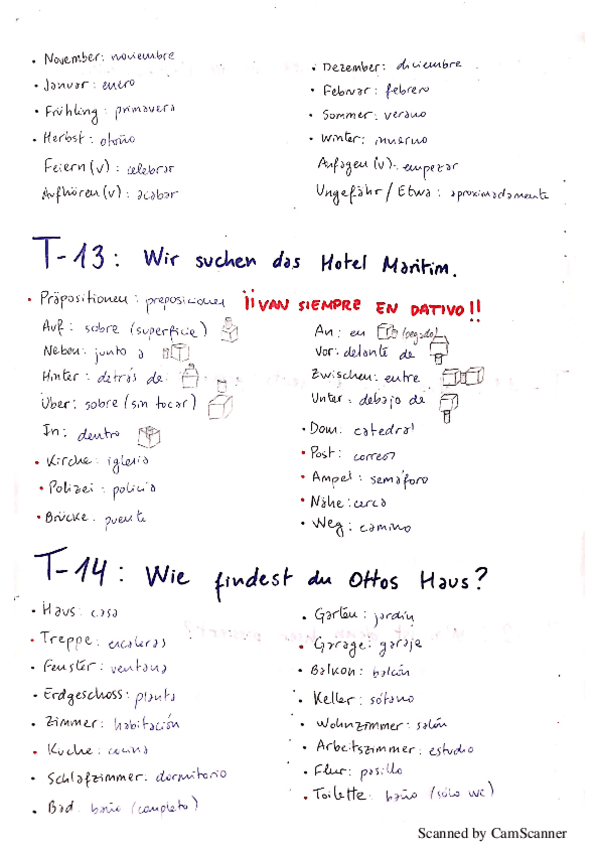 • November: noviembre
• Dezember: diciembre
• Januar: enero
• Februar: febrero
• Frühling: primavera
• Sommer: verano
• Herbst: otoño
• Winter: invierno
Feiern (v): celebrar
Anfagen (v): empezar
Aufhören (v): acabar
Ungefähr / Etwa: aproximadamente
T-13: Wir suchen das Hotel Maritim.
• Präpositionen: preposiciones ¡¡VAN SIEMPRE EN DATIVO!!
Auf: sobre (superficie)
An: en (pegado)
Neben: junto a
Vor: delante de
Hinter: detrás de
Zwischen: entre
Über: sobre (sin tocar)
Unter: debajo de
In: dentro
• Dom: catedral
• Kirche: iglesia
• Post: correos
• Polizei: policia
• Ampel: semáforo
• Brücke: puente
• Nähe: cerca
• Weg: camino
T-14: Wie findest du Ottos Haus?
• Haus: casa
• Garten: jardín
• Treppe: escaleras
• Garage: garaje
• Fenster: ventana
• Balkon: balcón
• Erdgeschoss: planta
• Keller: sótano
• Zimmer: habitación
• Wohnzimmer: salón
• Kuche: cocina
• Arbeitszimmer: estudio
• Schlafzimmer: dormitorio
• Flur: pasillo
• Bad: baño (completo)
• Toilette: baño (sólo wc)
Scanned by CamScanner